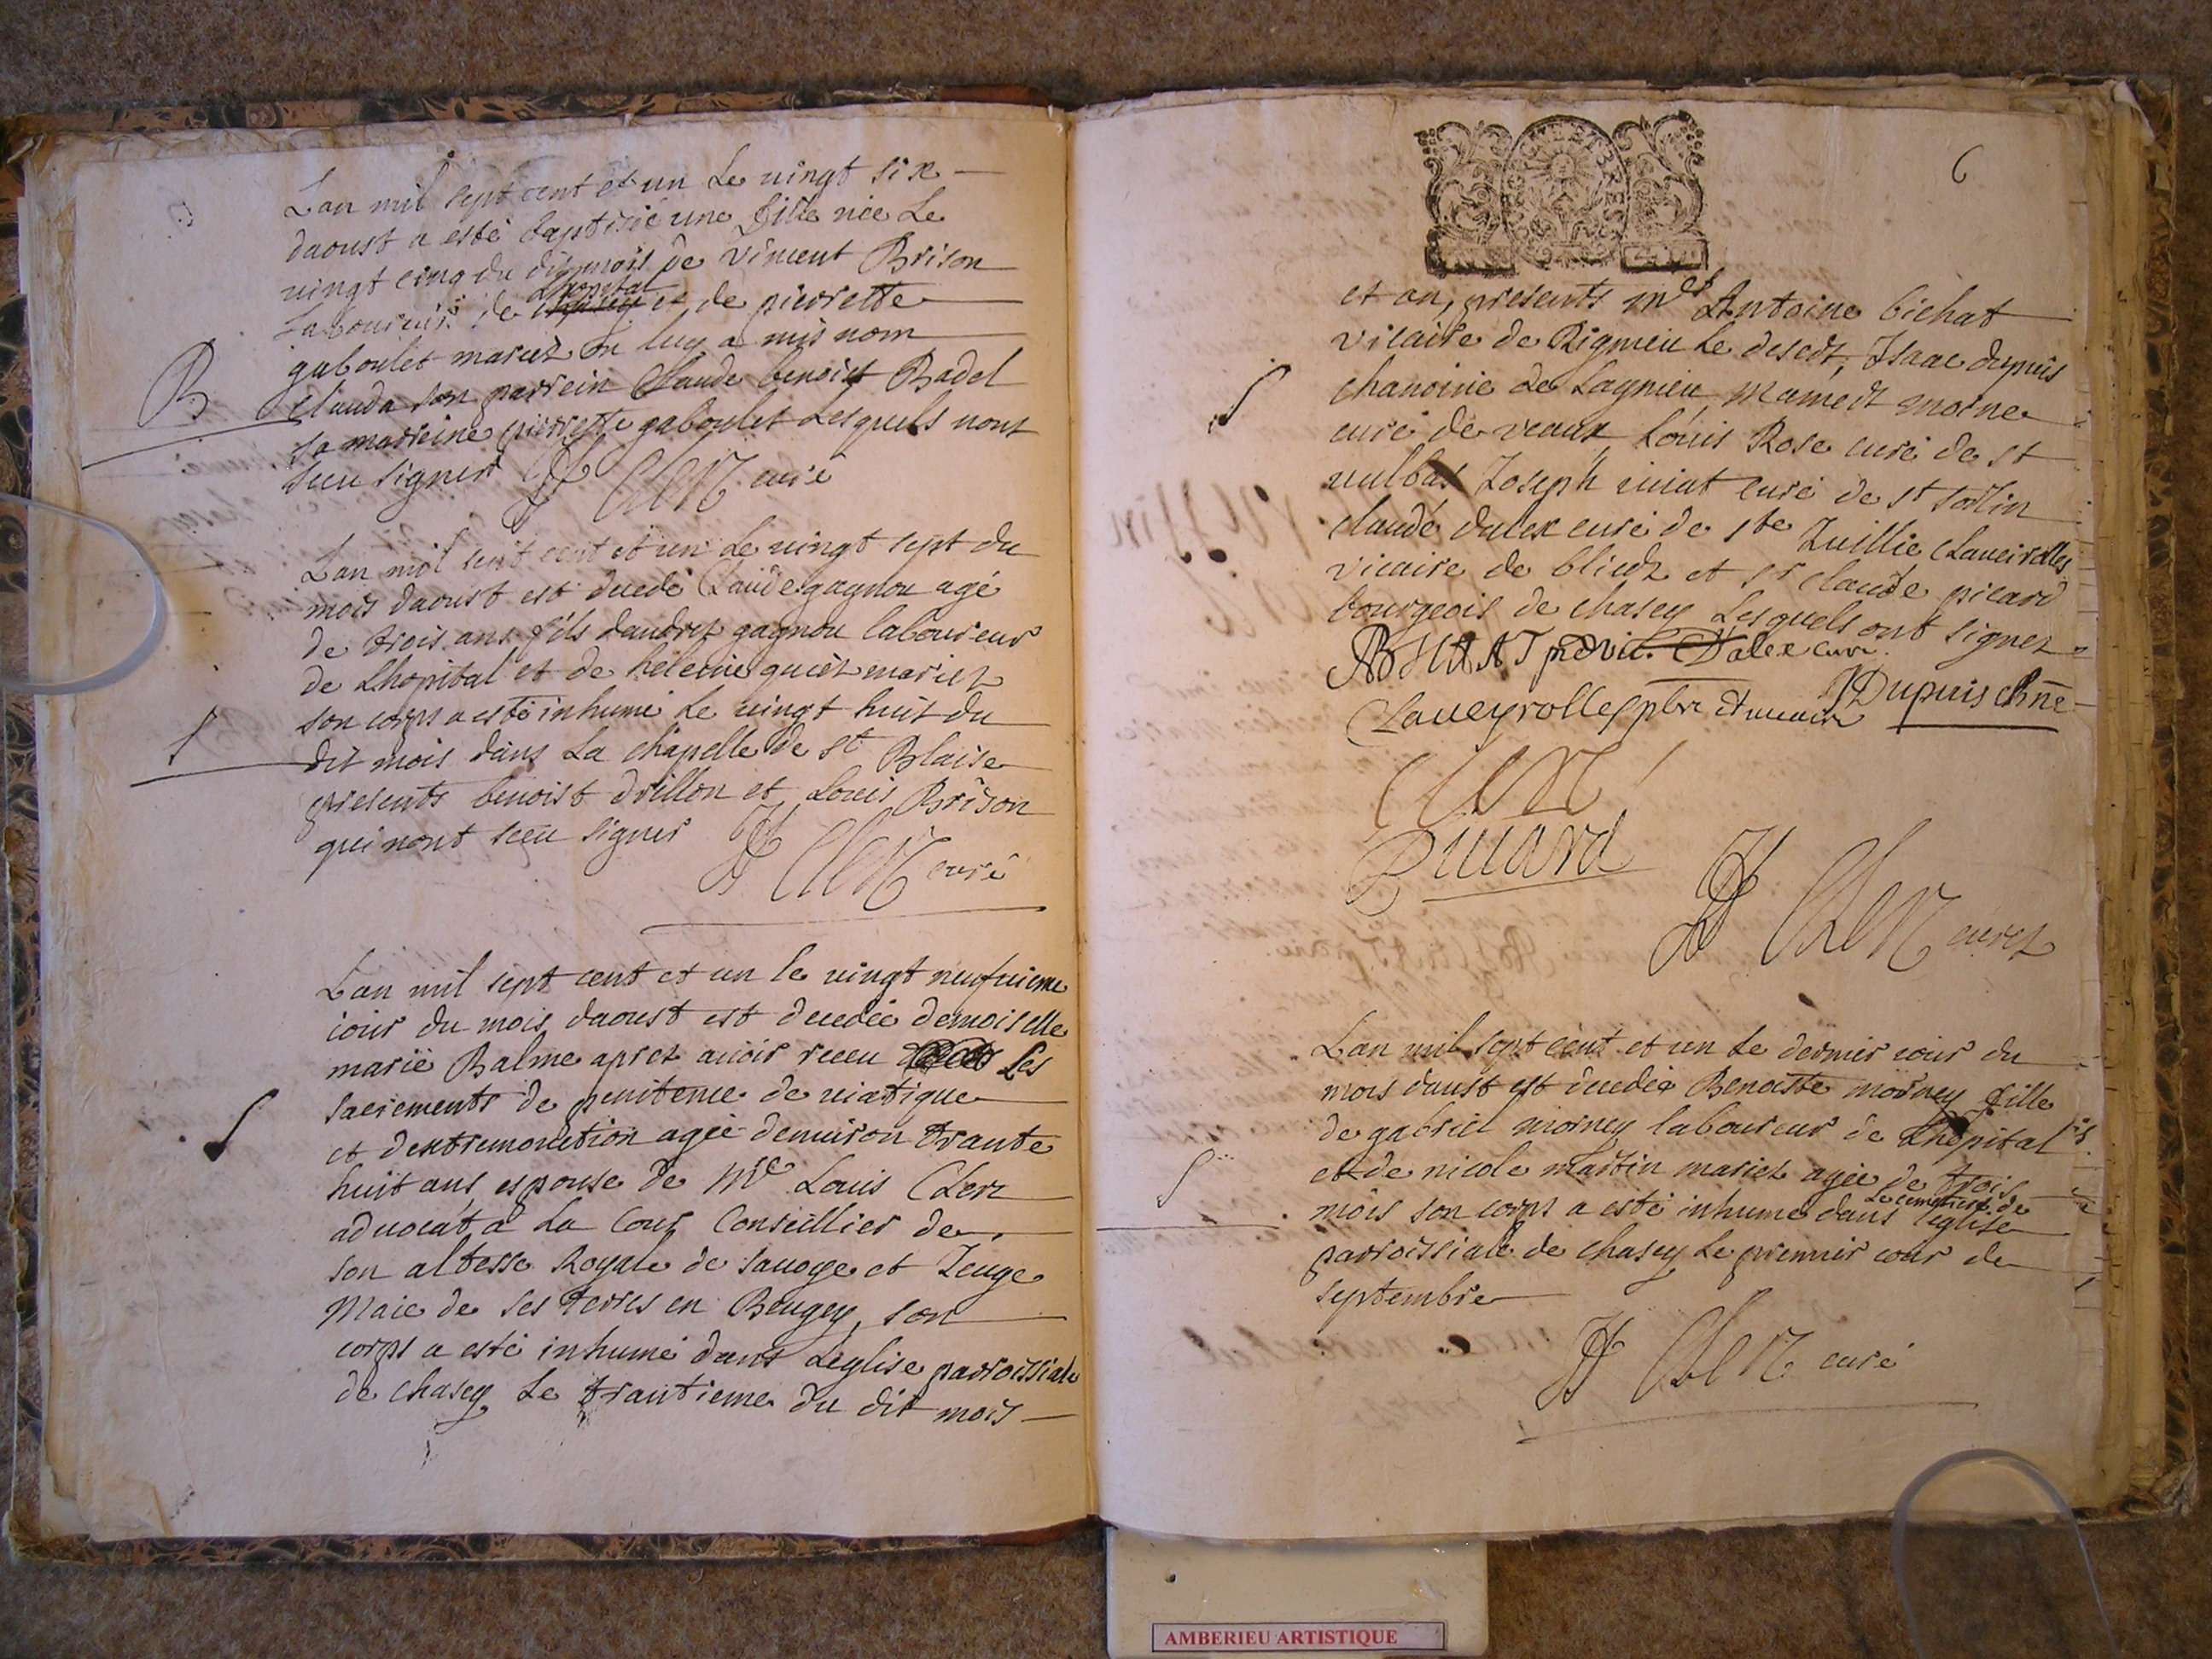 Lan mil sept cent et un Le vingt six
daoust a esté baptisée une fille née Le
vingt cinq du dit mois de vincent Brison
Lhopital
laboureur de et de pierrette
gaboulet mariez on luy a mis nom
B
clauda son parrein Claude benoist Badel
sa marreine pierrette gaboulet Lesquels nont
sceu signer Clerc curé
Lan mil sept cent et un Le vingt sept du
mois daoust est decedé Claude gagnou agé
de trois ans fils dandrez gagnou laboureur
de Lhopital et de heleine mariez
son corps a esté inhumé Le vingt huit du
S
dit mois dans La chapelle de st Blaise
presents benoist drillon et Louis Brison
qui nont sceu signer Clerc curé
Lan mil sept cent et un le vingt neufuieme
iour du mois daoust est decedée demoiselle
marie Balme aprez auoir receu Les
sacrements de penitence de viatique
S
et dextremonction agée denuiron trante
huit ans espouse de Mre Louis Clerc
aduocat a La Cour Conseillier de
son altesse Royale de sauoye et Juge
Maie de ses terres en Beugey, son
corps a esté inhumé dans Leglise parroissiale
de chasey Le trantieme du dit mois
6
et an, presents Antoine bichat
vicaire de Rigneu Le desert, Isaac dupuis
S
chanoine de Lagnieu Mamert morne
curé de veaux Louis Rose curé de st
vulbas Joseph curé de st sorlin
claude dalex curé de ste Juillie Claueirolles
vicaire de blieds et sr claude picard
bourgeois de chasey Lesquels ont signez
BICHAT Dalex curé
Claueyrolles pbre et vicaire JDupuis Chne
Clerc
Picard
Clerc curez
Lan mil sept cent et un Le dernier iour du
mois daust est decedée Benoiste morney fille
de gabriel morney laboureur de Lhopital
S
et de nicole martin mariez agée de trois
Le cemetiere de
mois son corps a esté inhumé dans leglise
parroissiale de chasey Le premier iour de
septembre
Clerc curé
AMBERIEU ARTISTIQUE